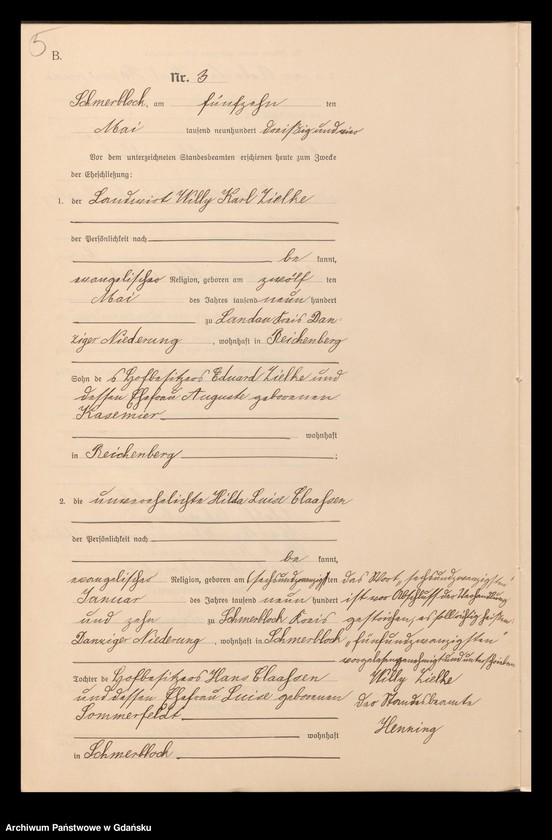 5
B.
Nr. 3
Schmerblock, am fünfzehn ten
Mai tausend neunhundert dreißig und vier
Vor dem unterzeichneten Standesbeamten erschienen heute zum Zwecke
der Eheschließung:
1. der Landwirt Willy Karl Zielke
der Persönlichkeit nach
be kannt,
evangelischer Religion, geboren am zwölf ten
Mai des Jahres tausend neun hundert
zu Landau Kreis Dan-
ziger Niederung, wohnhaft in Reichenberg
Sohn des Hofbesitzers Eduard Zielke und
dessen Ehefrau Auguste geborenen
Kasemier
wohnhaft
in Reichenberg ;
2. die unverehelichte Hilda Luise Claaßen
der Persönlichkeit nach
be kannt,
evangelischer Religion, geboren am (sechsundzwanzig)sten
Januar des Jahres tausend neun hundert
und zehn zu Schmerblock Kreis
Danziger Niederung, wohnhaft in Schmerblock
Tochter des Hofbesitzers Hans Claaßen
und dessen Ehefrau Luise geborenen
Sommerfeldt
wohnhaft
in Schmerblock
das Wort „sechsundzwanzigsten"
ist vor Abschluss der Verhandlung
gestrichen, es soll richtig heißen:
„fünfundzwanzigsten"
vorgelesen genehmigt und unterschrieben
Willy Zielke
Der Standesbeamte
Henning
Archiwum Państwowe w Gdańsku